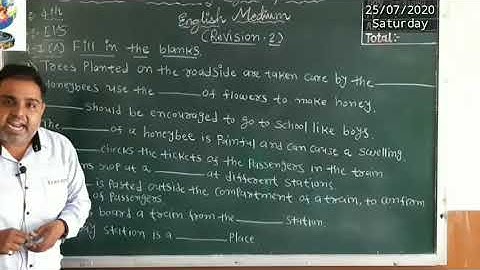 English Medium
25/07/2020
Saturday
4th
EVS
(Revision-2)
Total:-
(A) Fill in the blanks.
Trees Planted on the roadside are taken care by the
Honeybees use the ______ of flowers to make honey.
______ should be encouraged to go to school like boys.
The ______ of a honeybee is Painful and can cause a swelling.
______ checks the tickets of the Passengers in the train
stop at a ______ at different stations.
is Pasted outside the compartment of a train, to confirm
of Passengers.
board a train from the ______ station.
station is a ______ Place